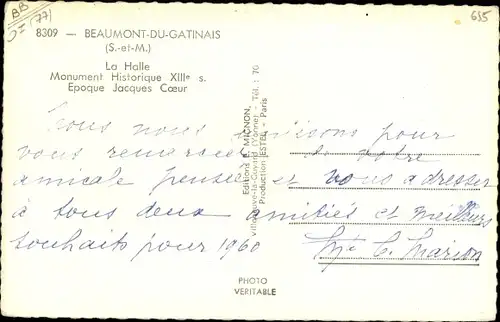 BB
(77)
695
8309 — BEAUMONT-DU-GATINAIS
(S.-et-M.)
La Halle
Monument Historique XIIIe s.
Epoque Jacques Cœur
Nous nous unissons pour
vous remercier de votre
amicale pensée et vous adresser
à tous deux amitiés et meilleurs
souhaits pour 1960
C. Marion
Editions E. MIGNON,
Villeneuve-la-Guyard (Yonne) - Tél. : 70
Production ESTEL - Paris
PHOTO
VERITABLE